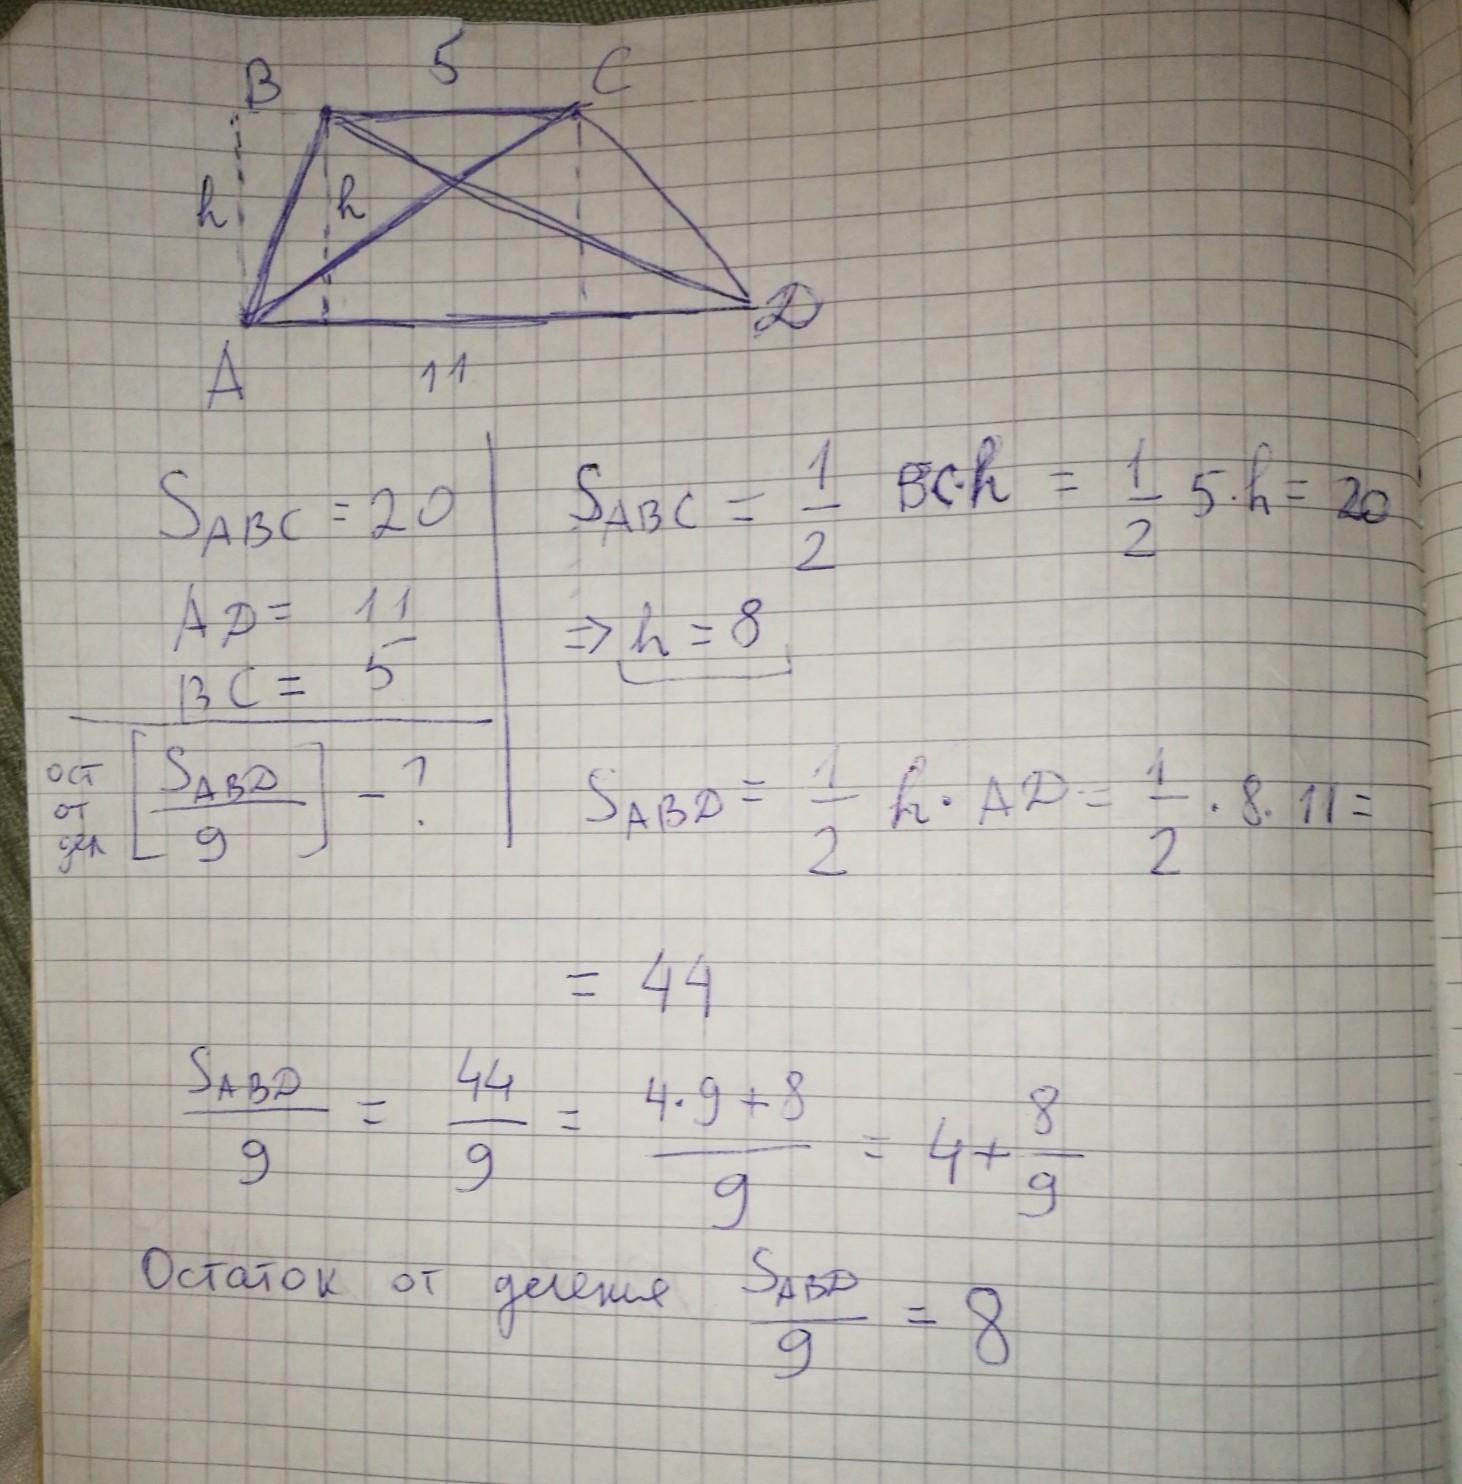 B 5 C
h h
A 11 D
S_ABC = 20
AD = 11
BC = 5
ост от дел [S_ABD / 9] - ?
S_ABC = 1/2 BC·h = 1/2 5·h = 20
=> h = 8
S_ABD = 1/2 h · AD = 1/2 · 8 · 11 =
= 44
S_ABD / 9 = 44 / 9 = (4·9+8) / 9 = 4 + 8/9
Остаток от деления S_ABD / 9 = 8